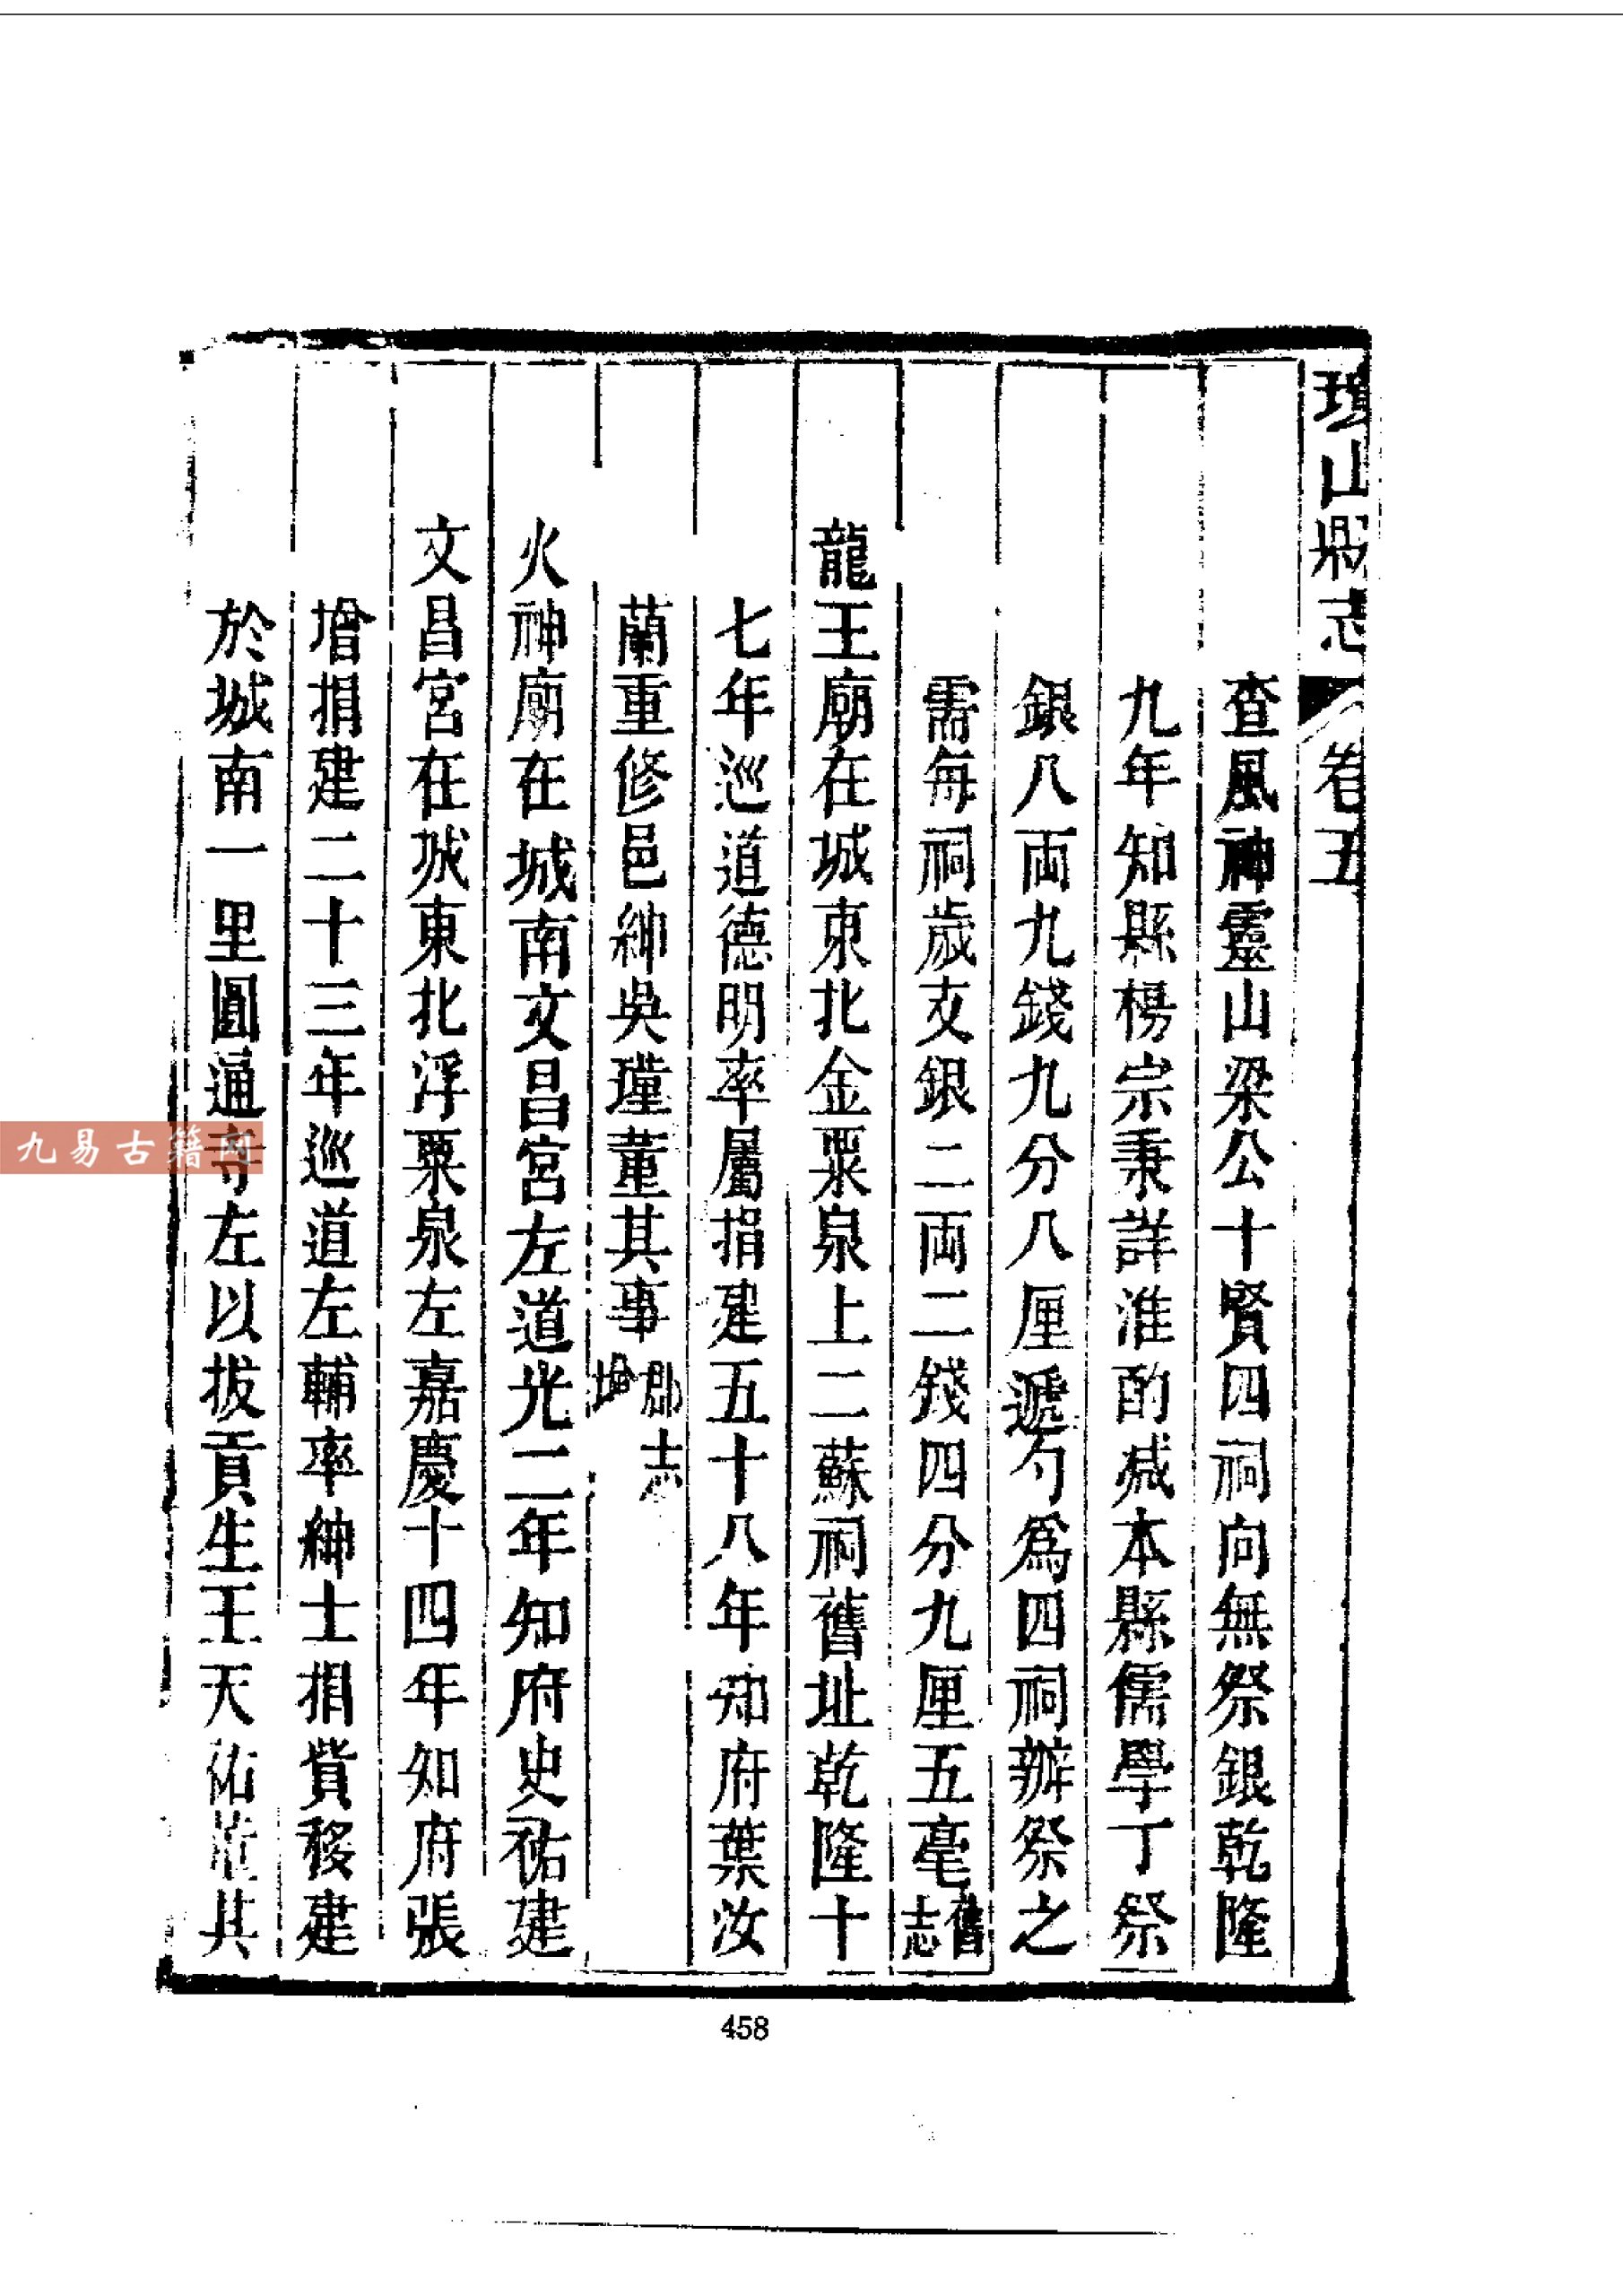 瓊山縣志 卷五
查風神靈山梁公十賢四祠向無祭銀乾隆
九年知縣楊宗秉詳准酌减本縣儒學丁祭
銀八両九錢九分八厘遞勻爲四祠辦祭之
需每祠歲支銀二両二錢四分九厘五毫舊志
龍王廟在城東北金粟泉上二蘇祠舊址乾隆十
七年巡道德明率屬捐建五十八年知府葉汝
蘭重修邑紳吳瑾董其事郡志增
火神廟在城南文昌宮左道光二年知府史祐建
文昌宮在城東北浮粟泉左嘉慶十四年知府張
增捐建二十三年巡道左輔率紳士捐貲移建
於城南一里圓通寺左以拔貢生王天祐董其
458
九易古籍网